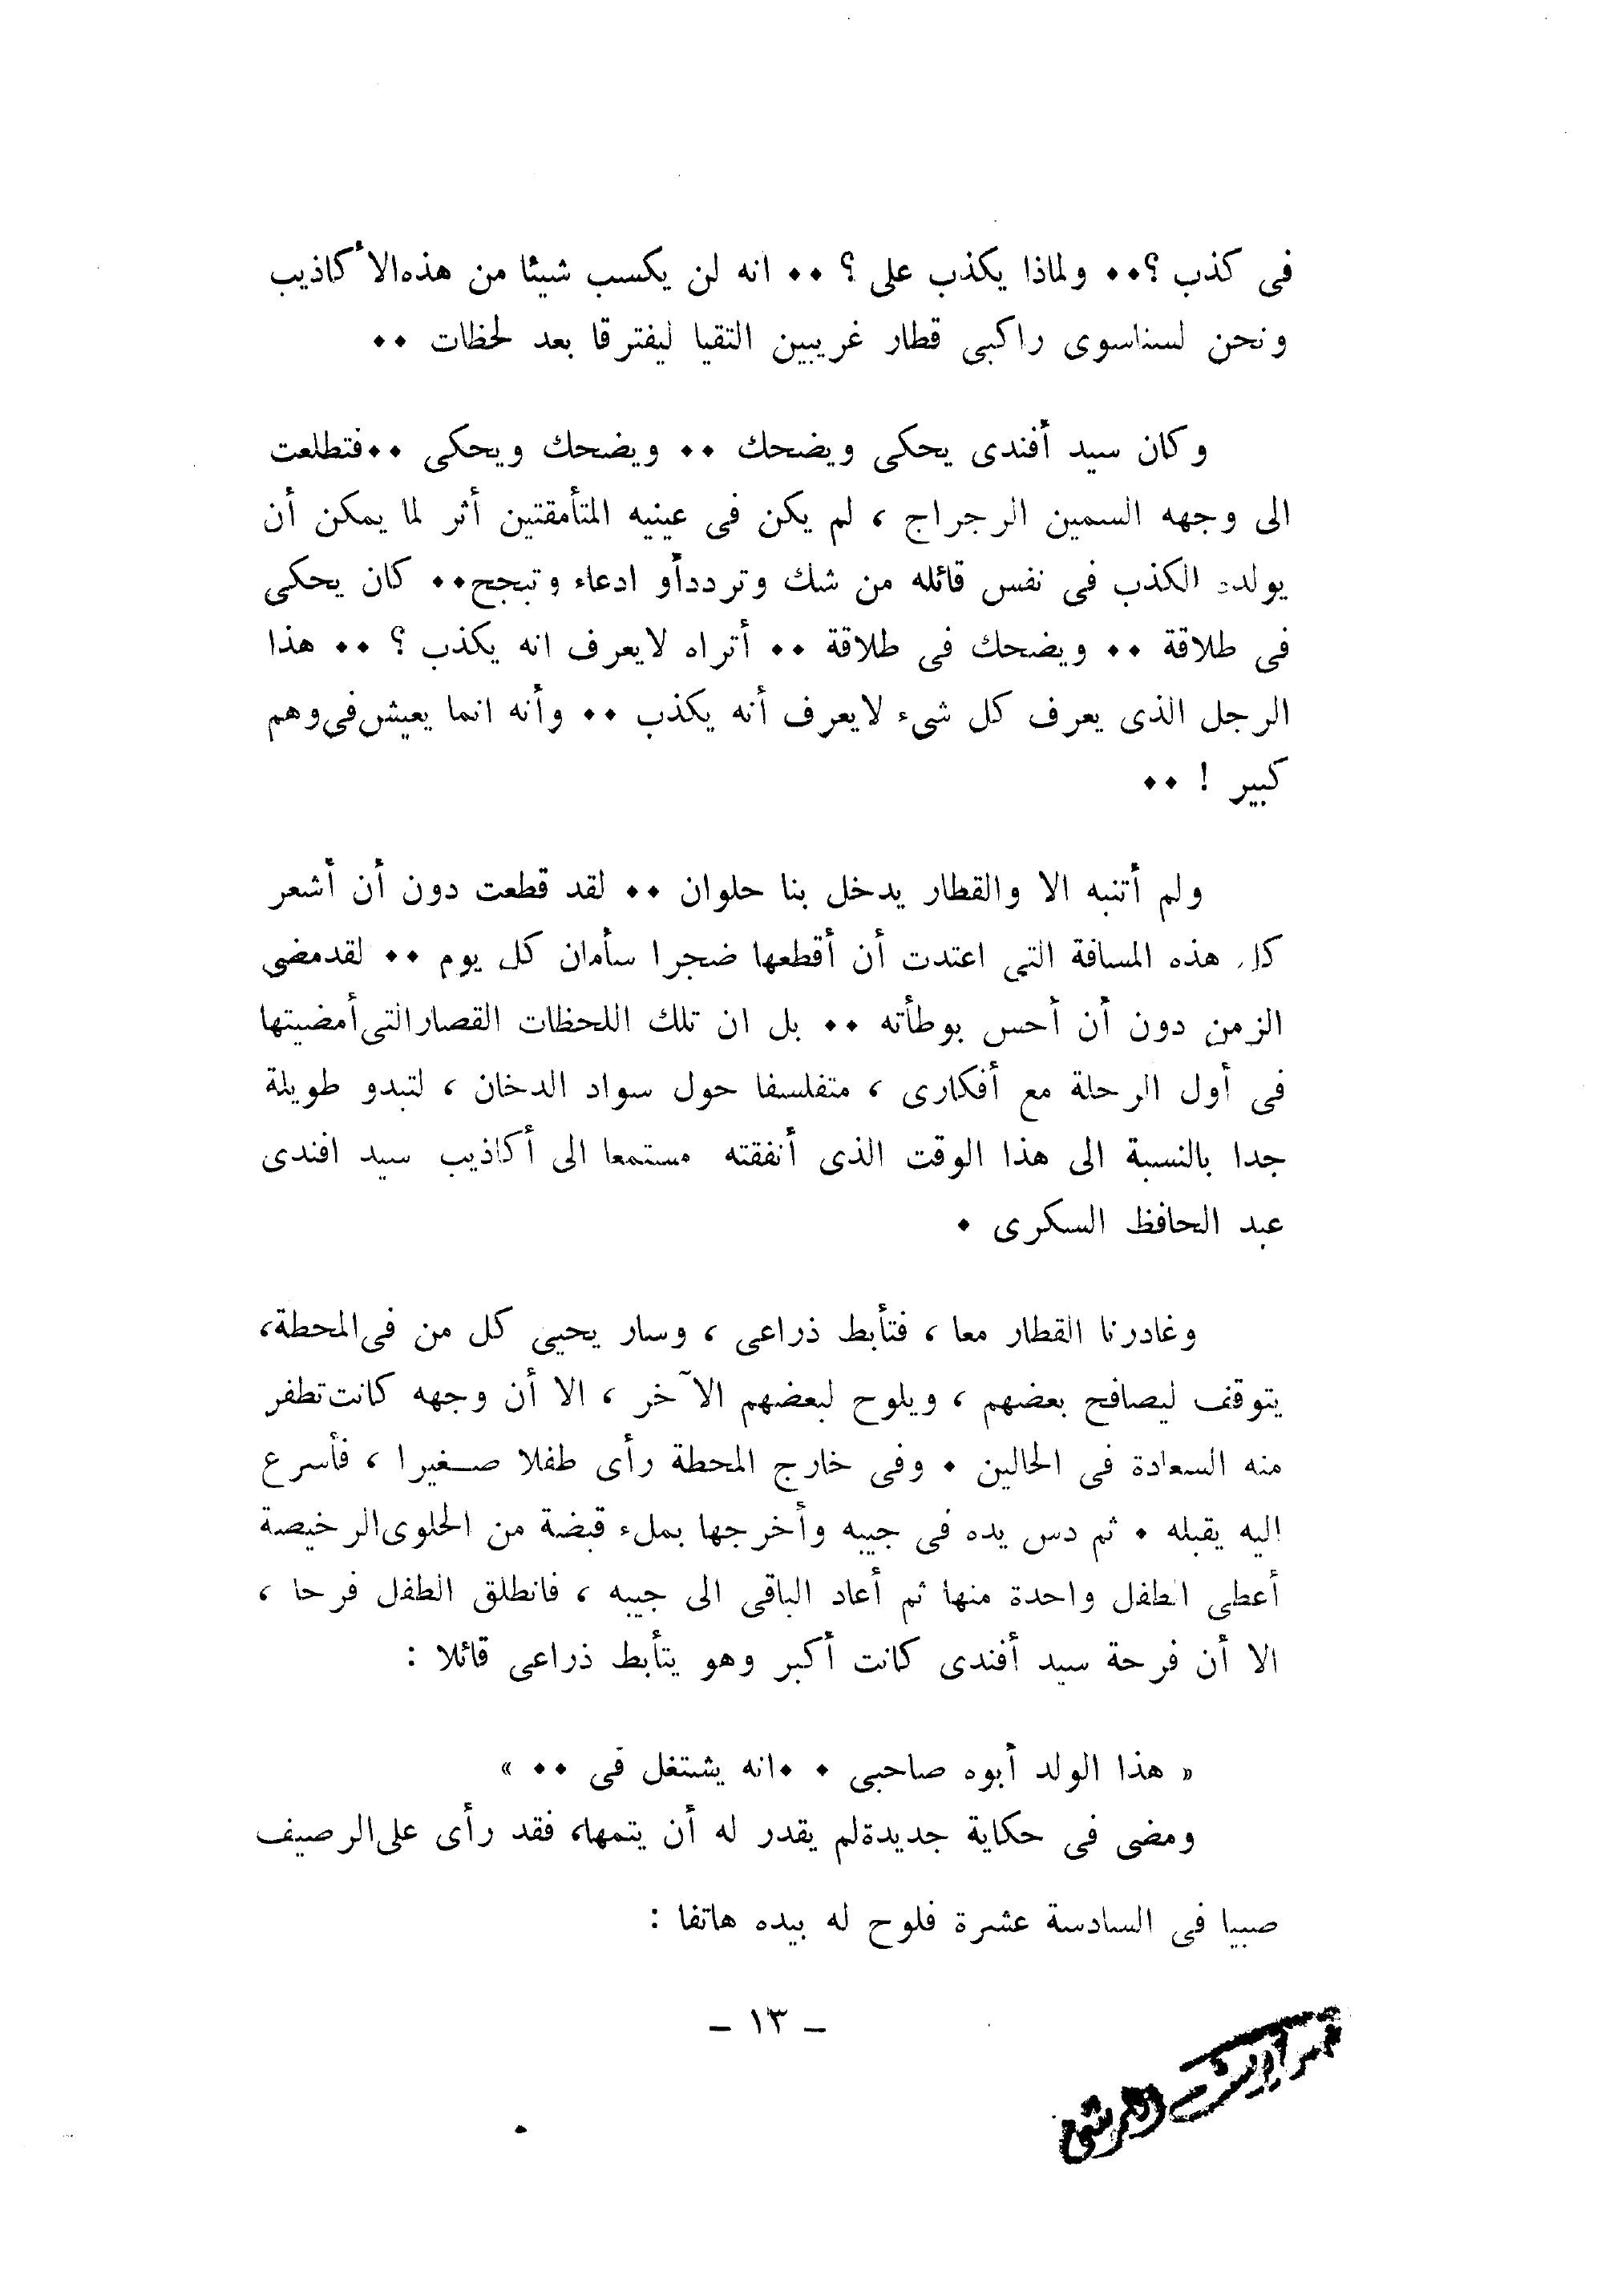 فى كذب ؟٠٠ ولماذا يكذب على ؟ ٠٠ انه لن يكسب شيئا من هذه الأكاذيب
ونحن لسنا سوى راكبى قطار غريبين التقيا ليفترقا بعد لحظات ٠٠
وكان سيد أفندى يحكى ويضحك ٠٠ ويضحك ويحكى ٠٠ فتطلعت
الى وجهه السمين الرجراج ، لم يكن فى عينيه المتأمقتين أثر لما يمكن أن
يولده الكذب فى نفس قائله من شك وتردد أو ادعاء وتبجح٠٠ كان يحكى
فى طلاقة ٠٠ ويضحك فى طلاقة ٠٠ أتراه لا يعرف انه يكذب ؟ ٠٠ هذا
الرجل الذى يعرف كل شىء لا يعرف أنه يكذب ٠٠ وأنه انما يعيش فى وهم
كبير ! ٠٠
ولم أتنبه الا والقطار يدخل بنا حلوان ٠٠ لقد قطعت دون أن أشعر
كل هذه المسافة التى اعتدت أن أقطعها ضجرا سأمان كل يوم ٠٠ لقد مضى
الزمن دون أن أحس بوطأته ٠٠ بل ان تلك اللحظات القصار التى أمضيتها
فى أول الرحلة مع أفكارى ، متفلسفا حول سواد الدخان ، لتبدو طويلة
جدا بالنسبة الى هذا الوقت الذى أنفقته مستمعا الى أكاذيب سيد افندى
عبد الحافظ السكرى ٠
وغادرنا القطار معا ، فتأبط ذراعى ، وسار يحيى كل من فى المحطة،
يتوقف ليصافح بعضهم ، ويلوح لبعضهم الآخر ، الا أن وجهه كانت تطفر
منه السعادة فى الحالين ٠ وفى خارج المحطة رأى طفلا صغيرا ، فأسرع
اليه يقبله ٠ ثم دس يده فى جيبه وأخرجها بملء قبضة من الحلوى الرخيصة
أعطى الطفل واحدة منها ثم أعاد الباقى الى جيبه ، فانطلق الطفل فرحا ،
الا أن فرحة سيد أفندى كانت أكبر وهو يتأبط ذراعى قائلا :
« هذا الولد أبوه صاحبى ٠ ٠انه يشتغل فى ٠٠ »
ومضى فى حكاية جديدة لم يقدر له أن يتمها، فقد رأى على الرصيف
صبيا فى السادسة عشرة فلوح له بيده هاتفا :
– ١٣ –